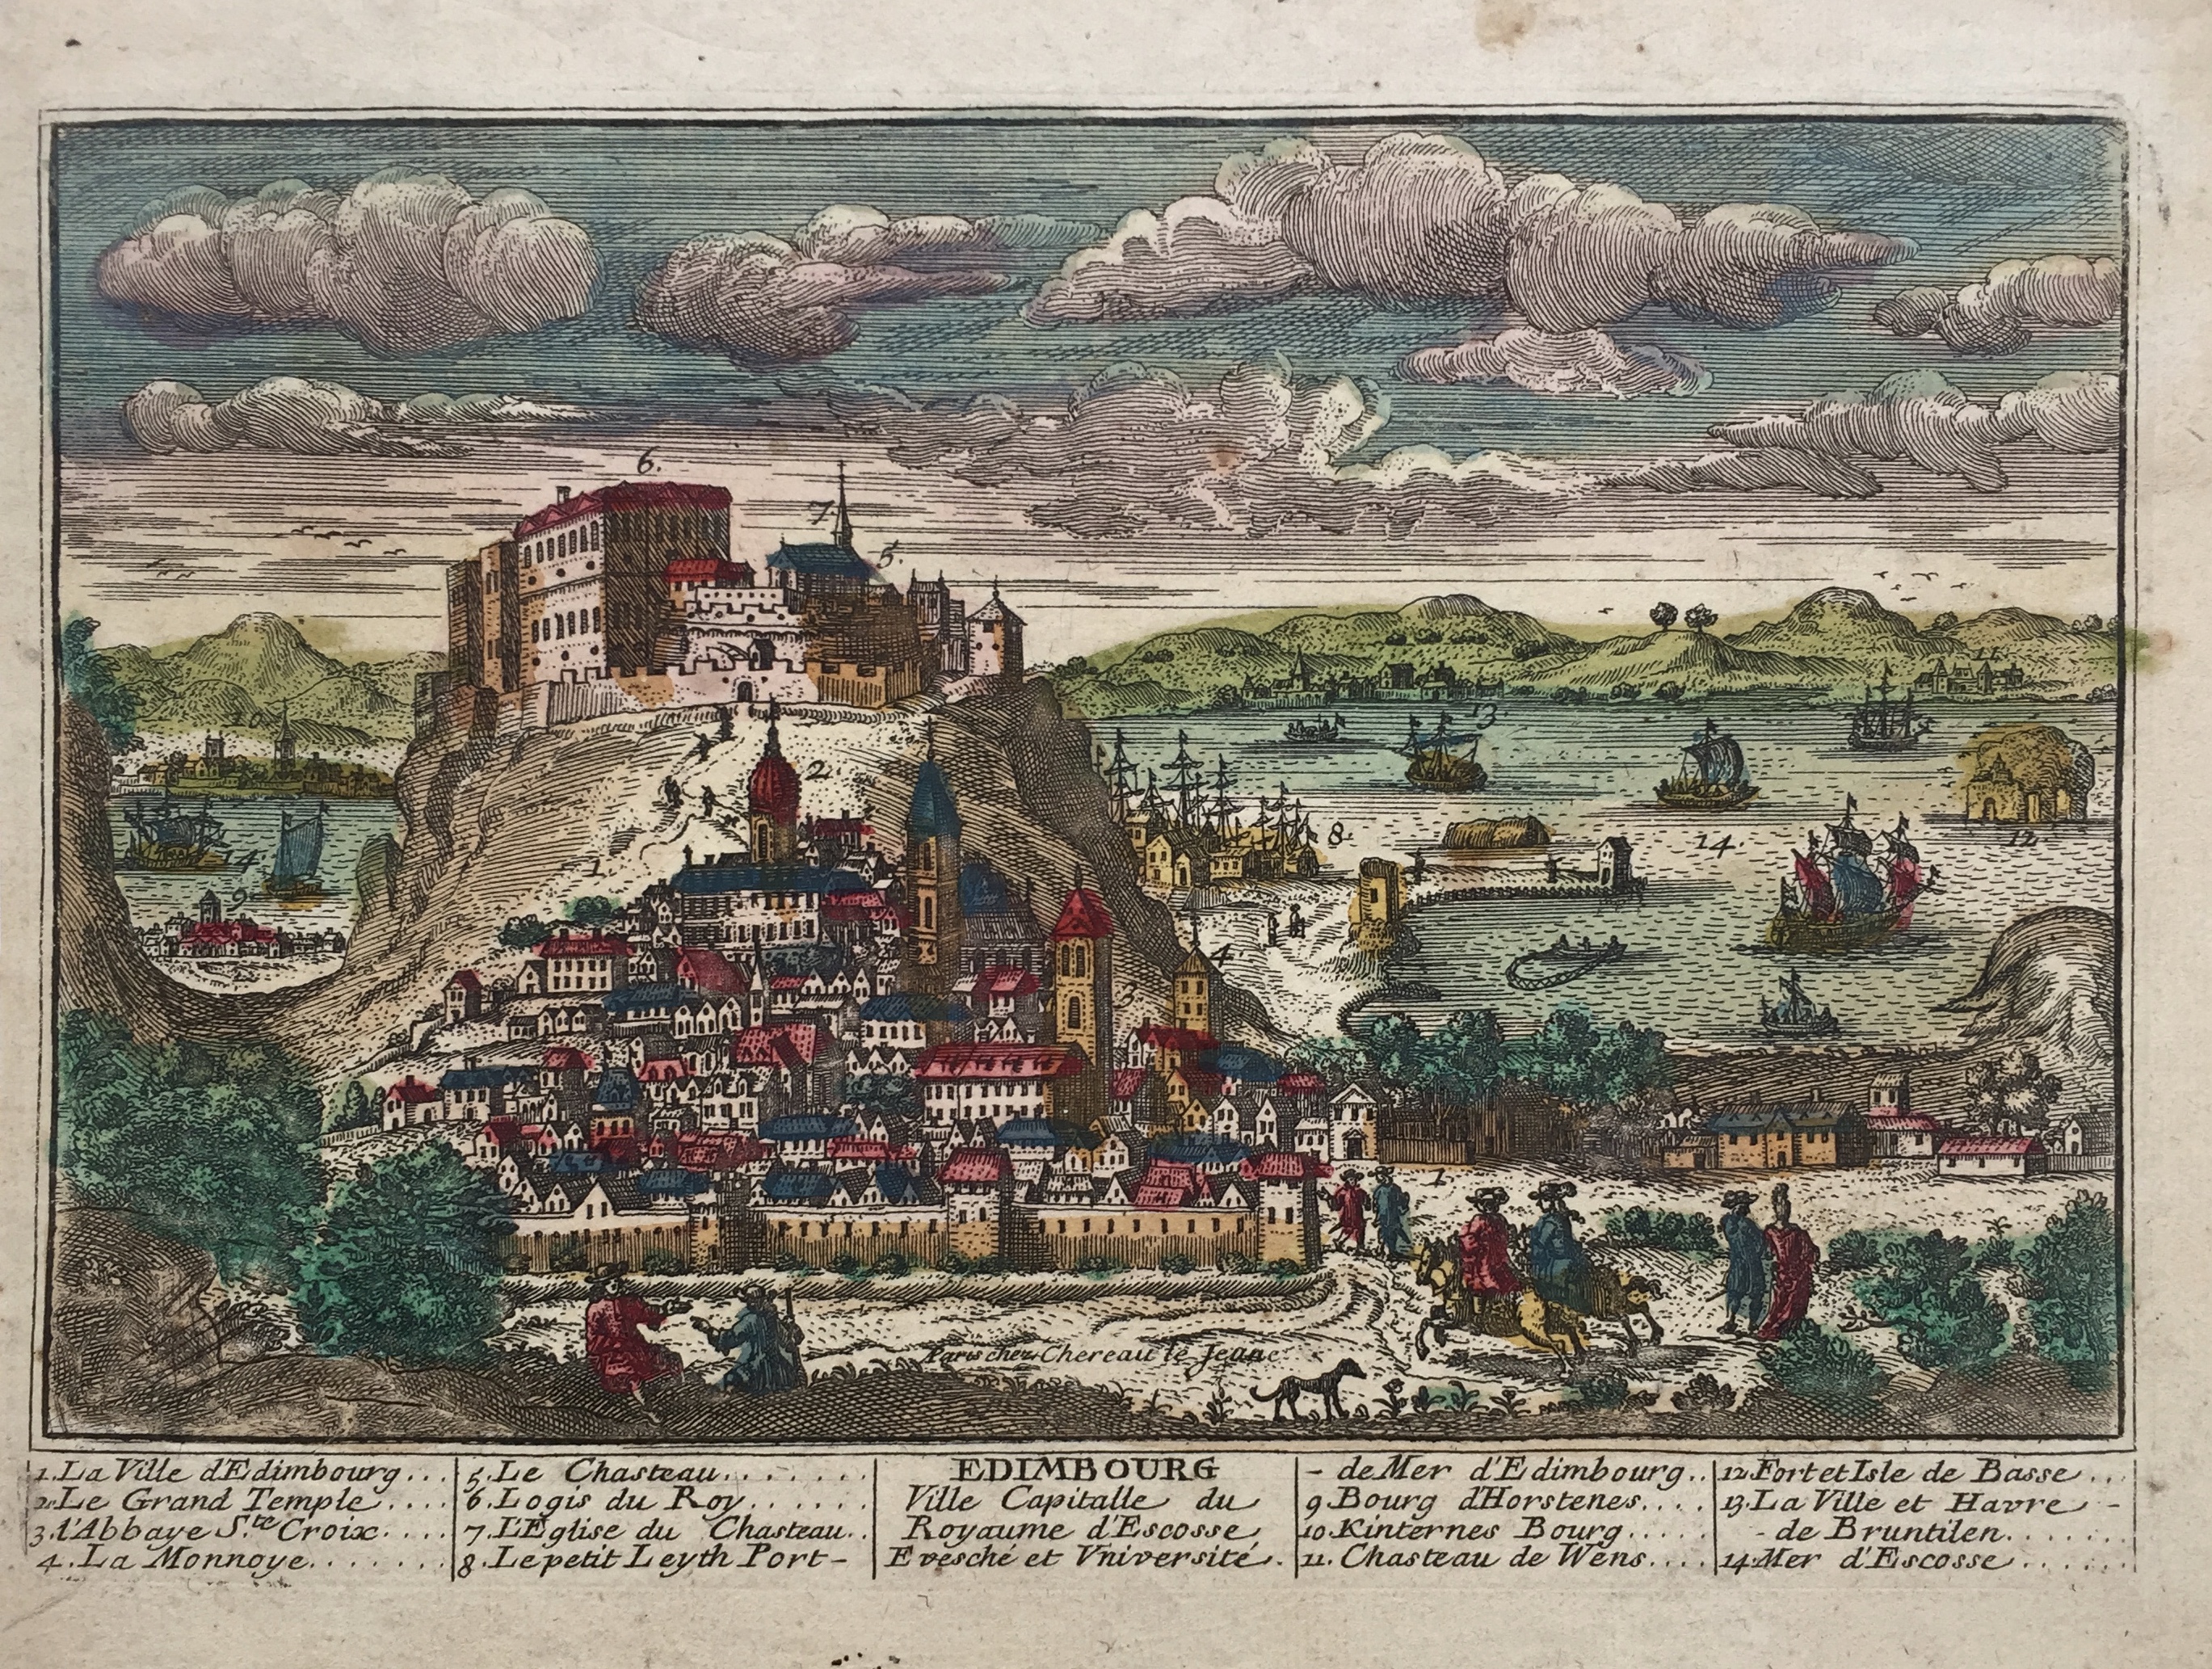 6.
7.
5.
10.
13.
11.
2.
8.
14.
12.
1
14.
9.
4.
3
1
Paris chez Chereau le Jeune
1. La Ville d'Edimbourg...
2. Le Grand Temple....
3. l'Abbaye S.te Croix....
4. La Monnoye.......
5. Le Chasteau.......
6. Logis du Roy......
7. L'Eglise du Chasteau..
8. Le petit Leyth Port-
EDIMBOURG
Ville Capitalle du
Royaume d'Escosse
Evesché et Vniversité.
- de Mer d'Edimbourg..
9. Bourg d'Horstenes....
10. Kinternes Bourg.....
11. Chasteau de Wens....
12. Fort et Isle de Basse...
13. La Ville et Havre -
- de Bruntilen......
14. Mer d'Escosse......